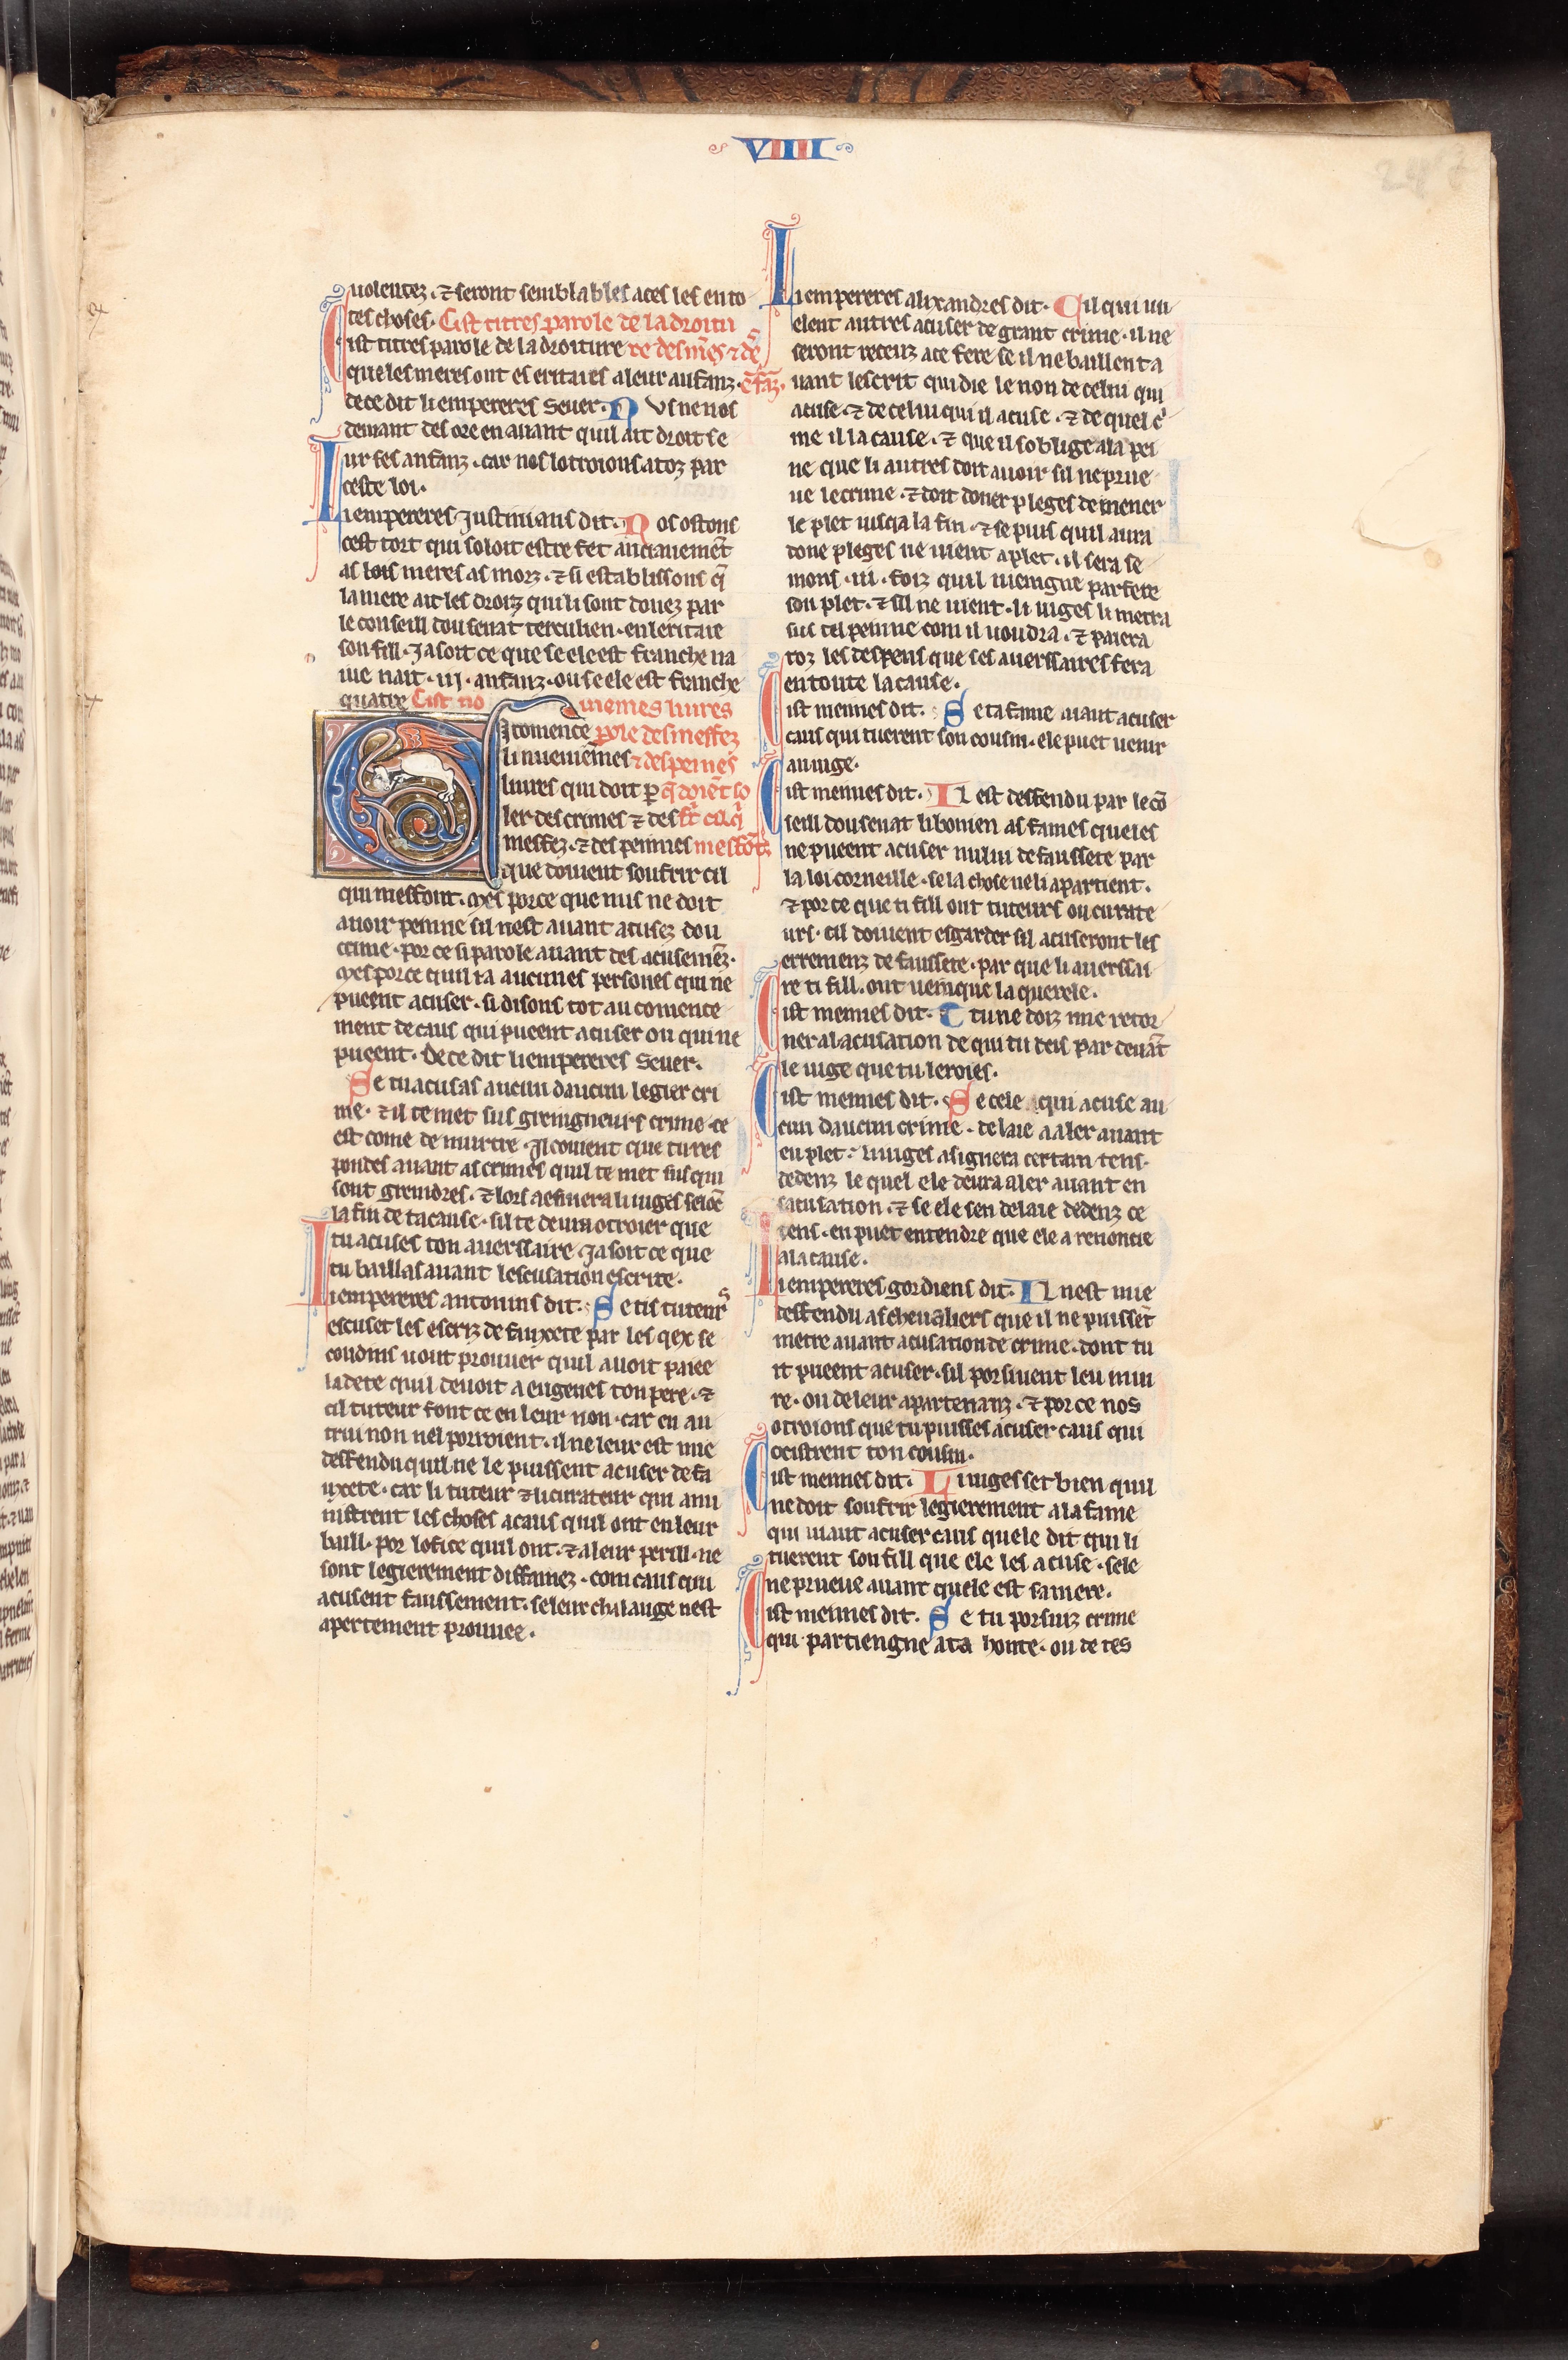 VIIII
uolentez. ⁊ seront semblables aces les en to
tes choses. Cist titres parole de la droitu
Cist titres parole de la droiture re des mẽs ⁊ dẽ
que les meres ont es eritaies a leur anfanz. c̃faz.
de ce dit li empereres Seuer. Nus ne nos
demant des ore en auant quil ait droit se
ur ses anfanz. car nos lotroions a toz par
ceste loi.
Li empereres Justinians dit. Nos ostons
cest tort qui soloit estre fet ancianemẽt
as lois meres as morz. ⁊ si establissons q̃
la mere ait les droiz qui li sont donez par
le conseill dou senat terculien. en leritaie
son fill. Ja soit ce que se ele est franche na
me nait .iij. anfanz. ou se ele est franche
quatre Cist no uiemes liures
Ci comence pole des meffez
li nueuiemes ⁊ des peines
liures qui doit ꝑ q̃ doiẽt so
ler des crimes ⁊ des fr̃ cil q̃
meffez. ⁊ des peinnes meffõt
que doiuent soufrir cil
qui meffont. Mes por ce que nus ne doit
auoir peinne sil nest auant acusez dou
crime. por ce si parole auant des acusemẽz.
Mes por ce quil i a aucunes persones qui ne
pueent acuser. si disons tot au comence
ment de caus qui pueent acuser ou qui ne
pueent. De ce dit li empereres Seuer.
Se tu acusas aucun daucun legier cri
me. ⁊ il te met sus greingneurs crime. ce
est come de murtre. Il couient que tu res
pondes auant as crimes quil te met sus qui
sont greindres. ⁊ lors a esmera li iuges selõc
la fin de ta cause. sil te deura otroier que
tu acuses ton auerssaire. Ja soit ce que
tu baillas auant lescusation escrite.
Li empereres antonins dit. Se ti tuteur
escuset les escriz de fauxete par les qex se
condins uout prouuer quil auoit paiee
la dete quil deuoit a eugenes ton pere. ⁊
cil tuteur font ce en leur non. car en au
trui non nel porroient. il ne leur est mie
deffendu quil ne le puissent acuser de fa
uxete. car li tuteur ⁊ li curateur qui ami
nistrent les choses a caus quil ont en leur
baill. por lofice quil ont. ⁊ a leur perill. ne
sont legierement diffamez. com caus qui
acusent faussement. se leur chalange nest
apertement prouuee.
Li empereres alixandres dit. Cil qui uu
elent autres acuser de grant crime. il ne
seront receuz a ce fere se il ne baillent a
uant lescrit qui die le non de celui qui
acuse. ⁊ de celui qui il acuse. ⁊ de quel c̃
me il la cause. ⁊ que il soblige a la pei
ne que li autres doit auoir sil ne prue
ue le crime. ⁊ doit doner pleges de mener
le plet iusqa la fin. ⁊ se puis quil aura
done pleges ne uient a plet. il sera se
mons .iii. foiz quil uieingne parfere
son plet. ⁊ sil ne uient. li iuges li metra
sus tel peinne com il uoudra. ⁊ paiera
toz les despens que ses auerssaires fera
en toute la cause.
Cist meimes dit. Se ta fame uiaut acuser
caus qui tuerent son cousin. ele puet uenir
au iuge.
Cist meimes dit. Il est deffendu par le cõ
seill dou senat libonien as fames queles
ne pueent acuser nului de faussete par
la loi corneille. se la chose ne li apartient.
⁊ por ce que ti fill ont tuteurs ou curate
urs. cil doiuent esgarder sil acuseront les
erremenz de faussete. par que li auerssai
re ti fill. ont ueinque la querele.
Cist meimes dit. Tu ne doiz mie retor
ner al acusation de qui tu deis par deuãt
le iuge que tu leroies.
Cist meimes dit. Se cele qui acuse au
cun daucun crime. delaie a aler auant
en plet. li iuges asignera certain tens.
dedenz le quel ele deura aler auant en
sacusation. ⁊ se ele sen delaie dedenz ce
tens. en puet entendre que ele a renoncie
a la cause.
Li empereres gordiens dit. Il nest mie
deffendu as cheualiers que il ne puissẽt
metre auant acusation de crime. dont tu
it pueent acuser. sil porsiuent leu iniu
re. ou de leur apartenanz. ⁊ por ce nos
otroions que tu puisses acuser caus qui
ocistrent ton cousin.
Cist meimes dit. Li iuges set bien quil
ne doit soufrir legierement a la fame
qui uiaut acuser caus quele dit qui li
tuerent son fill que ele les acuse. sele
ne prueue auant quele est sa mere.
Cist meimes dit. Se tu porsiuz crime
qui partiengne a ta honte. ou de tes